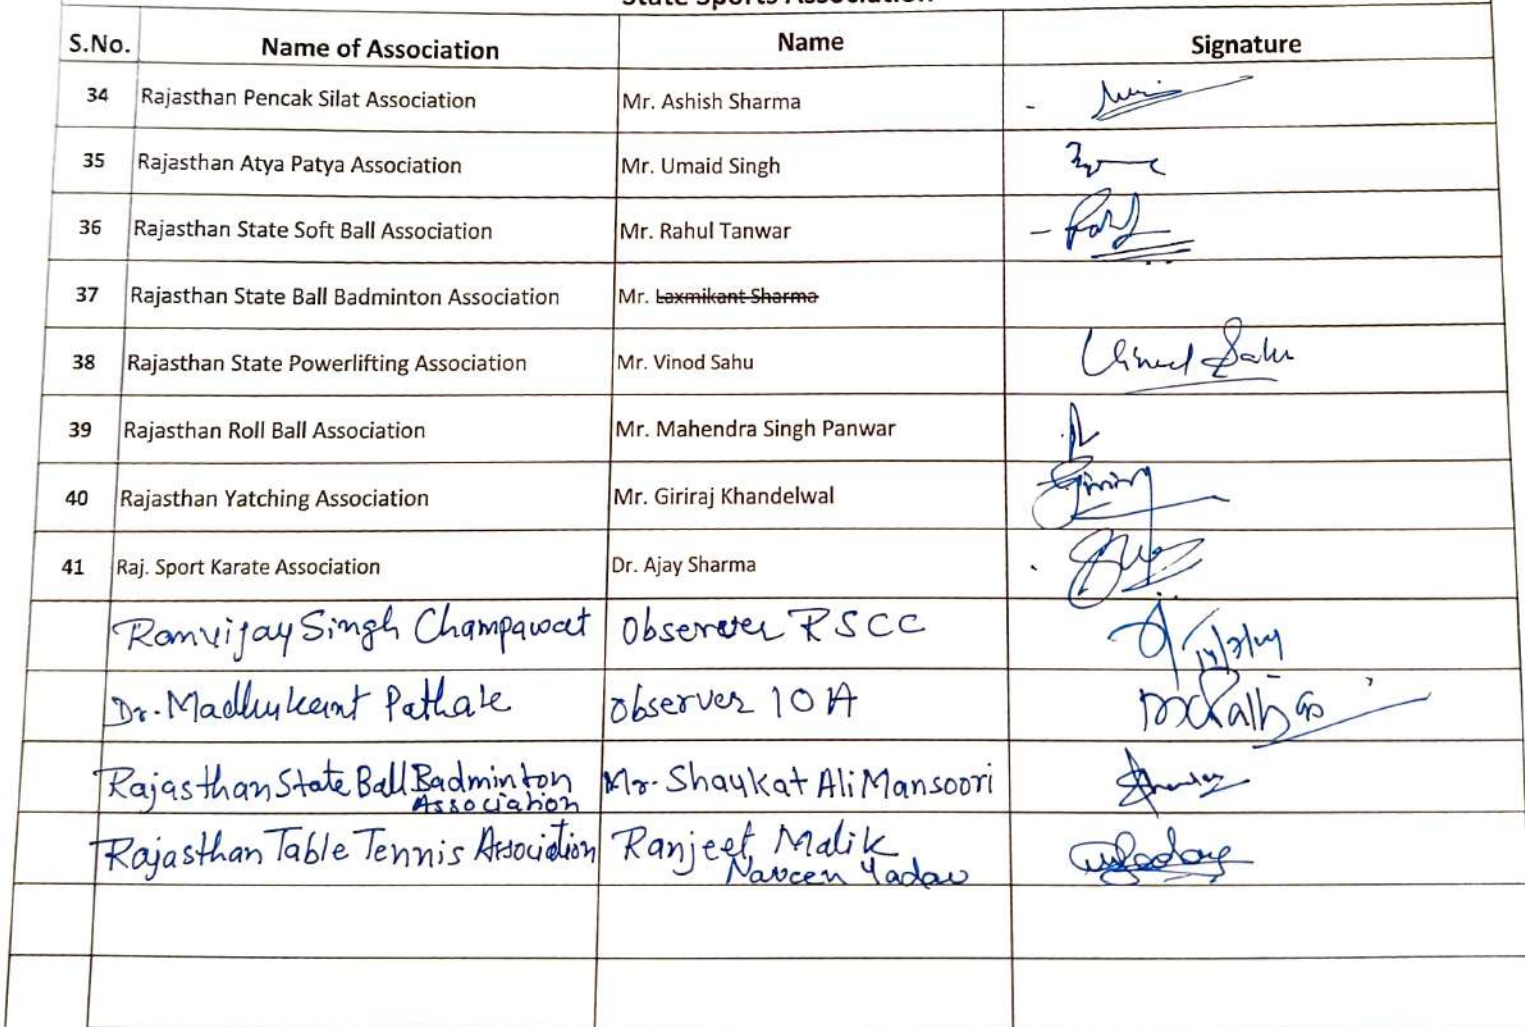 State Sports Association
S.No. Name of Association Name Signature
34 Rajasthan Pencak Silat Association Mr. Ashish Sharma
35 Rajasthan Atya Patya Association Mr. Umaid Singh
36 Rajasthan State Soft Ball Association Mr. Rahul Tanwar
37 Rajasthan State Ball Badminton Association Mr. Laxmikant Sharma
38 Rajasthan State Powerlifting Association Mr. Vinod Sahu Vinod Sahu
39 Rajasthan Roll Ball Association Mr. Mahendra Singh Panwar
40 Rajasthan Yatching Association Mr. Giriraj Khandelwal
41 Raj. Sport Karate Association Dr. Ajay Sharma
Ranvijay Singh Champawat Observer RSCC
Dr. Madhukant Pathak Observer IOA
Rajasthan State Ball Badminton Mr. Shaukat Ali Mansoori
Association
Rajasthan Table Tennis Association Ranjeet Malik
Naveen Yadav